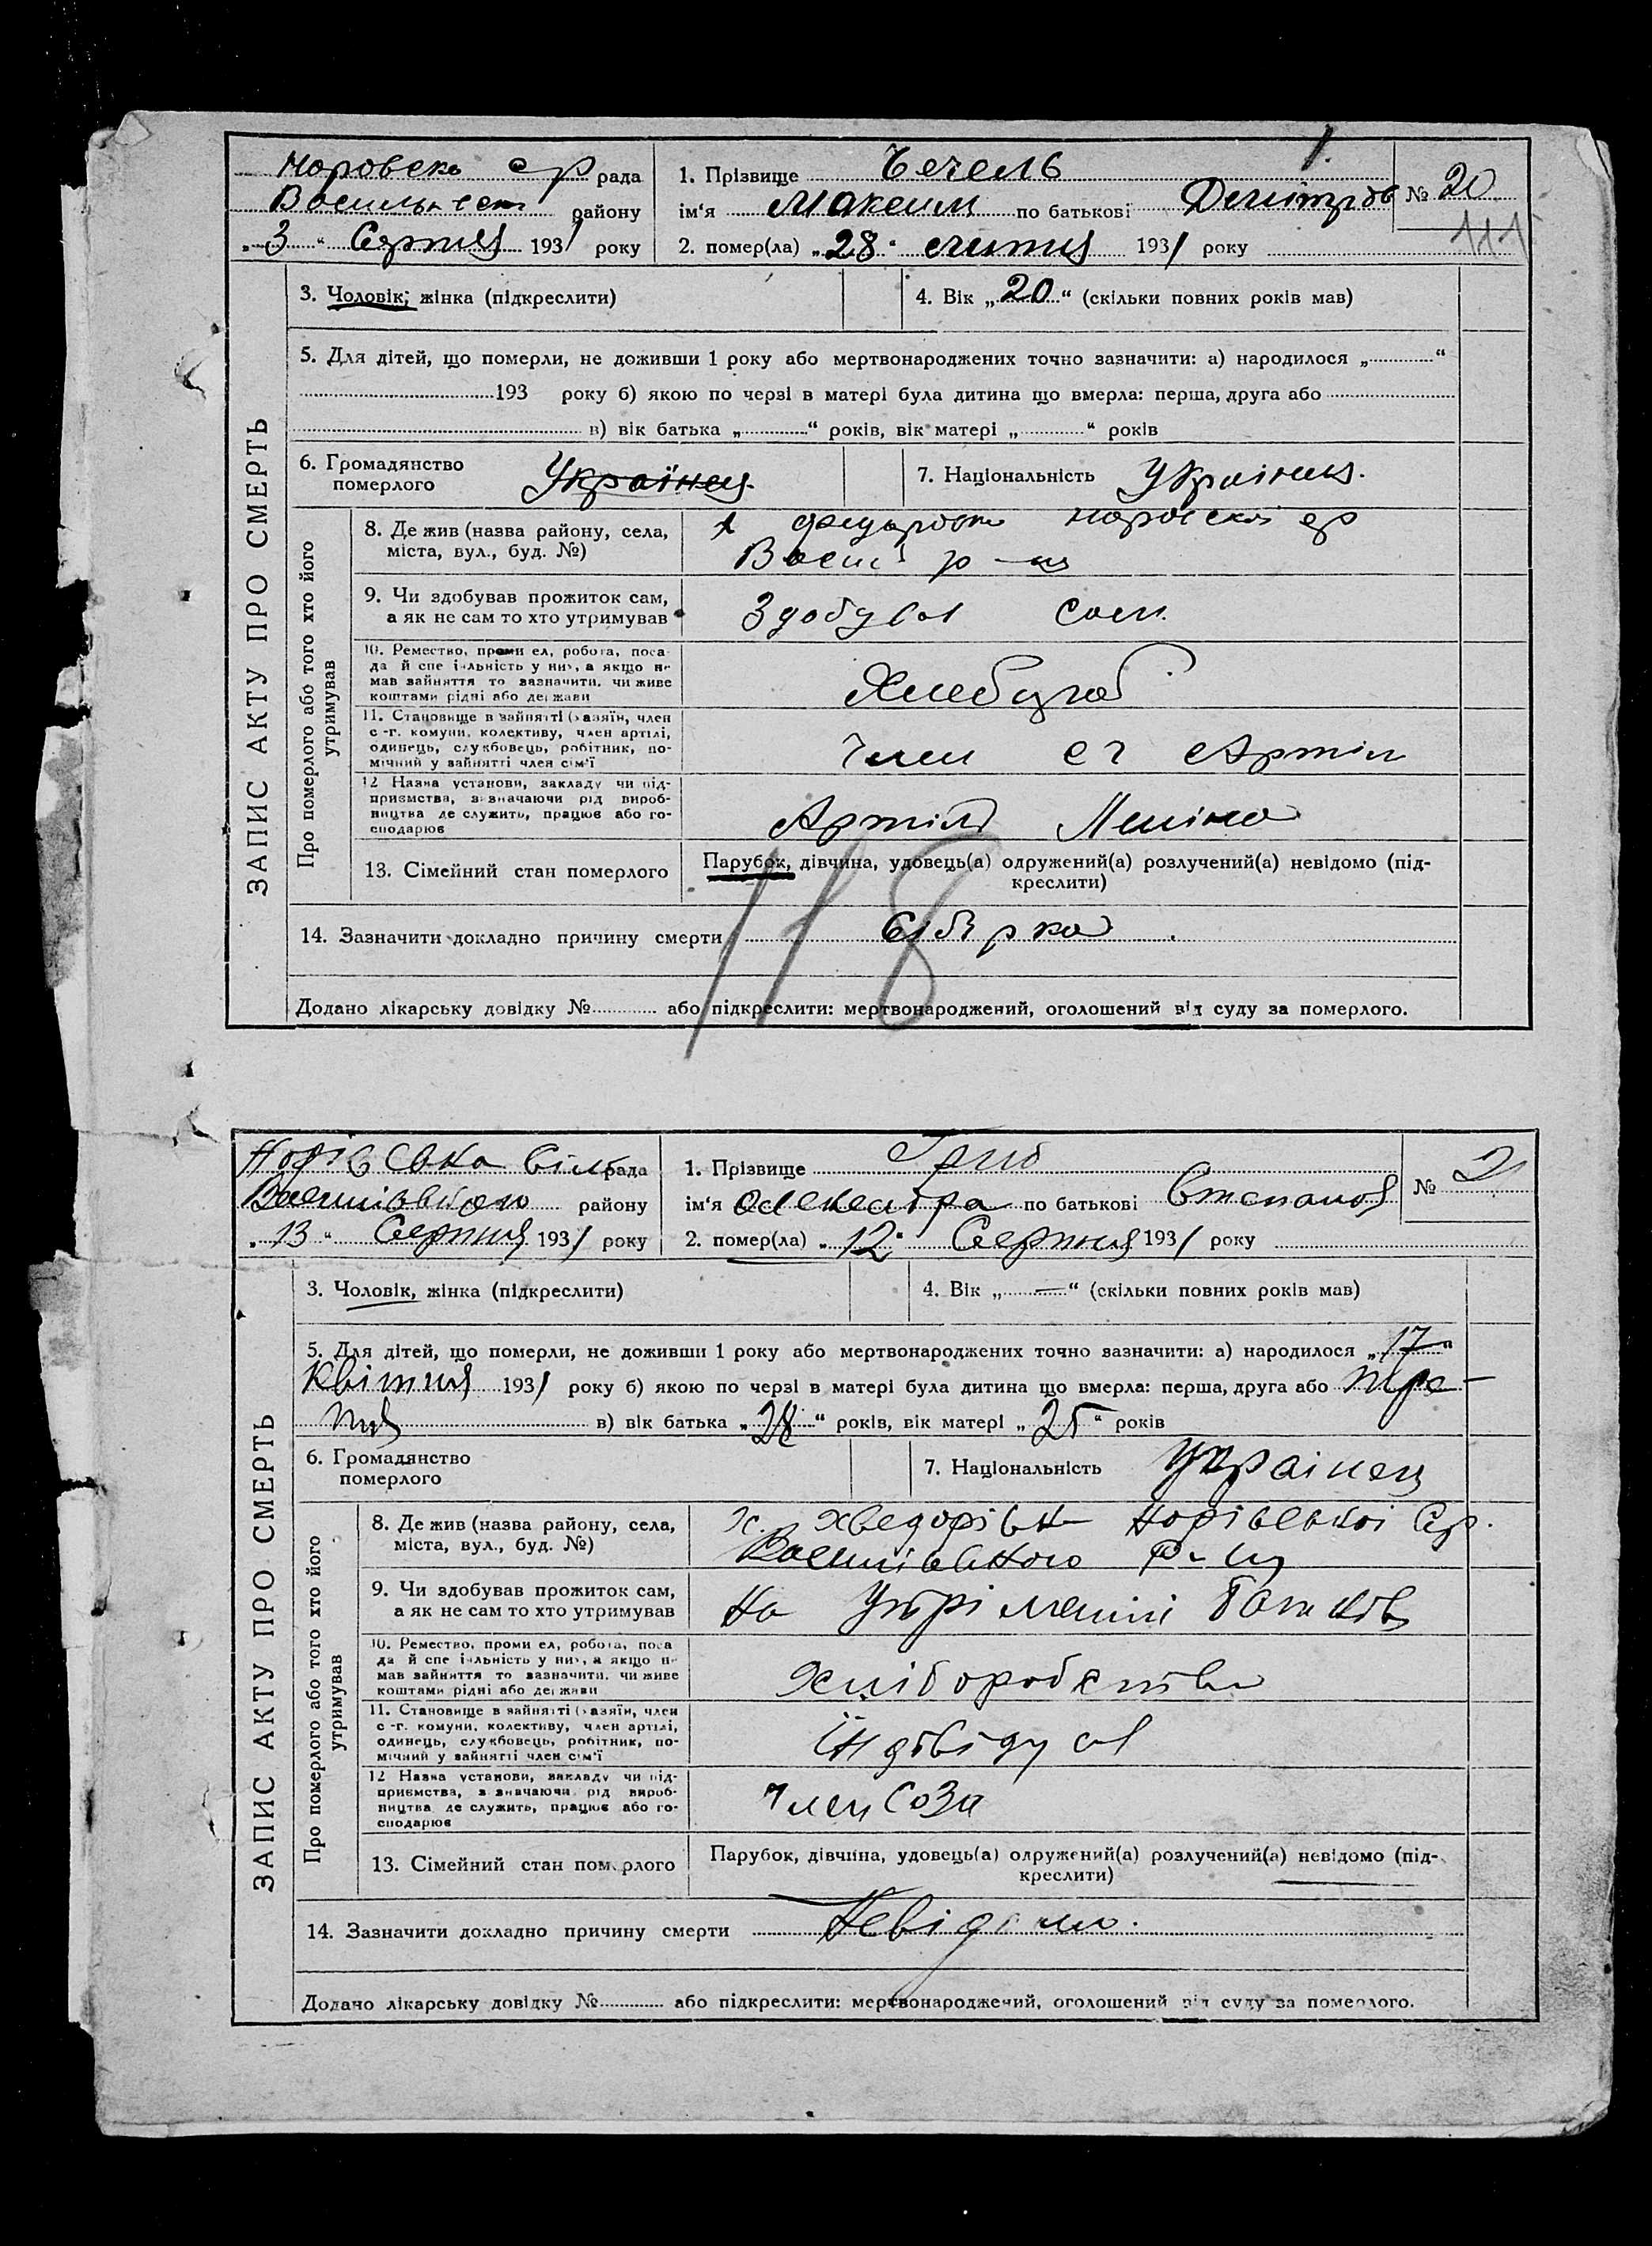 рада 1. Прізвище Чечель
району ім‘я Максим по батькові № 20
111
„ 3 “ Серпня 1931 року 2. помер(ла) „ 28 “ 1931 року
3. Чоловік; жінка (підкреслити) 4. Вік „ 20 “ (скільки повних років мав)
5. Для дітей, що померли, не доживши 1 року або мертвонароджених точно зазначити: а) народилося „ “
193 року б) якою по черзі в матері була дитина що вмерла: перша, друга або
в) вік батька „ “ років, вік матері „ “ років
6. Громадянство
померлого
Українця
7. Національність Українця.
ЗАПИС АКТУ ПРО СМЕРТЬ
Про померлого або того хто його
утримував
8. Де жив (назва району, села,
міста, вул., буд. №)
9. Чи здобував прожиток сам,
а як не сам то хто утримував
Здобував сам.
10. Ремество, проми ел, робота, поса
да й спе іяльність у них, а якщо не
мав зайняття то зазначити, чи живе
коштами рідні або держави
11. Становище в зайнятті (хазяїн, член
с-г. комуни, колективу, член артілі,
одинець, службовець, робітник, по-
мічний у зайнятті член сім‘ї
Член сг Артіли
12 Назва установи, закладу чи під-
приємства, зазначаючи рід вироб-
ництва де служить, працює або го-
сподарює
Артіль Леніна
13. Сімейний стан померлого
Парубок, дівчина, удовець(а) одружений(а) розлучений(а) невідомо (під-
креслити)
14. Зазначити докладно причину смерти
118
Додано лікарську довідку № або підкреслити: мертвонароджений, оголошений від суду за померлого.
Норівська Сіль рада 1. Прізвище Гриб
району ім‘я Олександра по батькові Степанов № 21
„ 13 “ Серпня 1931 року 2. помер(ла) „ 12 “ Серпня 1931 року
3. Чоловік, жінка (підкреслити) 4. Вік „ — “ (скільки повних років мав)
5. Для дітей, що померли, не доживши 1 року або мертвонароджених точно зазначити: а) народилося „ 17 “
Квітня 1931 року б) якою по черзі в матері була дитина що вмерла: перша, друга або тре-
тя в) вік батька „ 28 “ років, вік матері „ 25 “ років
6. Громадянство
померлого
7. Національність Українец
ЗАПИС АКТУ ПРО СМЕРТЬ
Про померлого або того хто його
утримував
8. Де жив (назва району, села,
міста, вул., буд. №)
х. Хведорівка Норівської Ср.
р-ну
9. Чи здобував прожиток сам,
а як не сам то хто утримував
На утріманні батьків
10. Ремество, проми ел, робота, поса
да й спе іяльність у них, а якщо не
мав зайняття то зазначити, чи живе
коштами рідні або держави
Хліборобство
11. Становище в зайнятті (хазяїн, член
с-г. комуни, колективу, член артілі,
одинець, службовець, робітник, по-
мічний у зайнятті член сім‘ї
12 Назва установи, закладу чи під-
приємства, зазначаючи рід вироб-
ництва де служить, працює або го-
сподарює
Член Соза
13. Сімейний стан померлого
Парубок, дівчина, удовець(а) одружений(а) розлучений(а) невідомо (під-
креслити)
14. Зазначити докладно причину смерти Невідомо.
Додано лікарську довідку № або підкреслити: мертвонароджений, оголошений від суду за померлого.